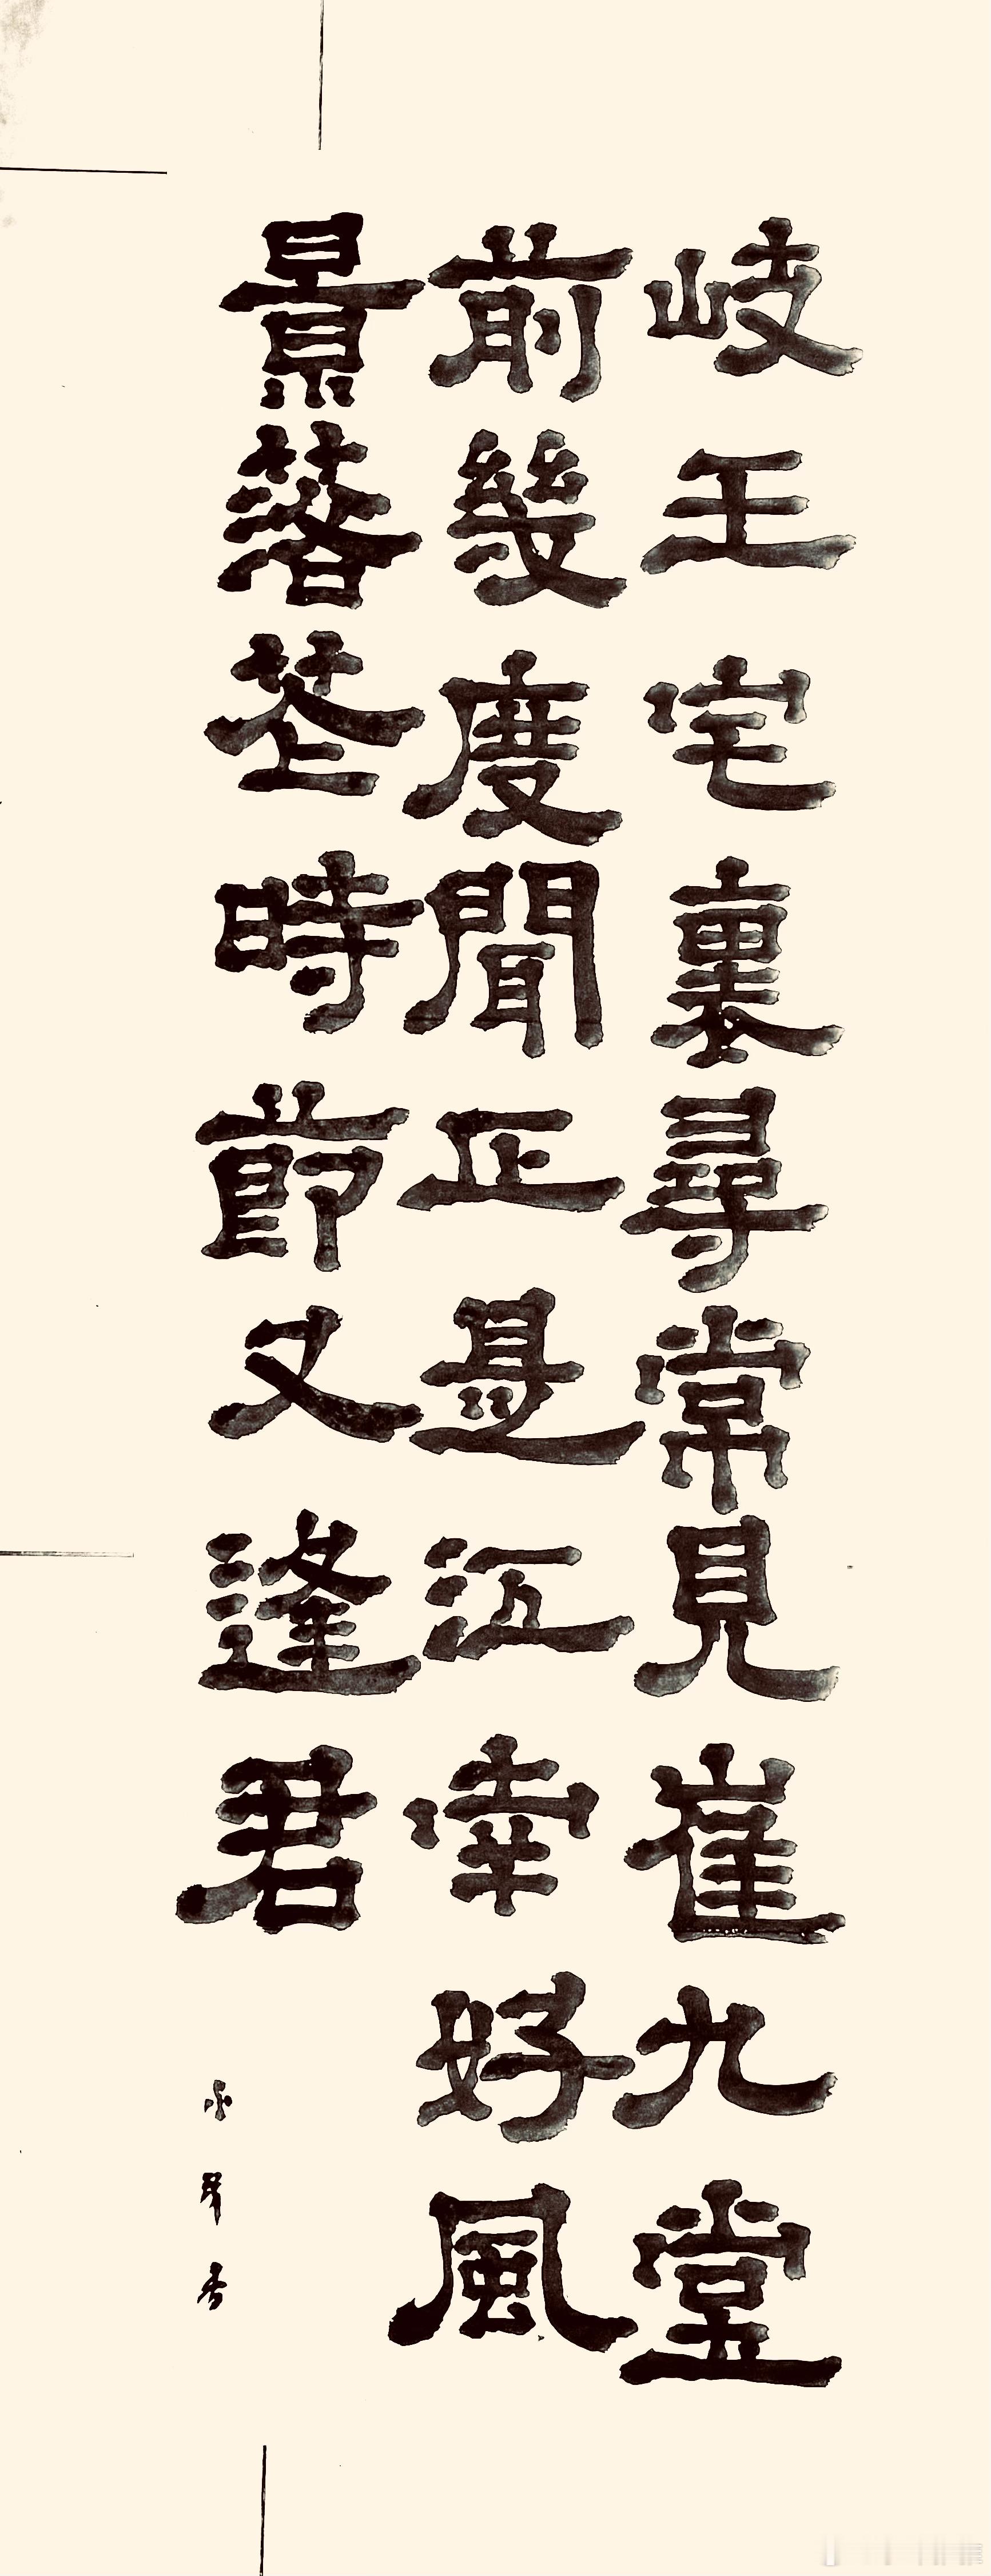 岐王宅裏尋常見崔九堂
前幾度聞正是江南好風
景落花時節又逢君